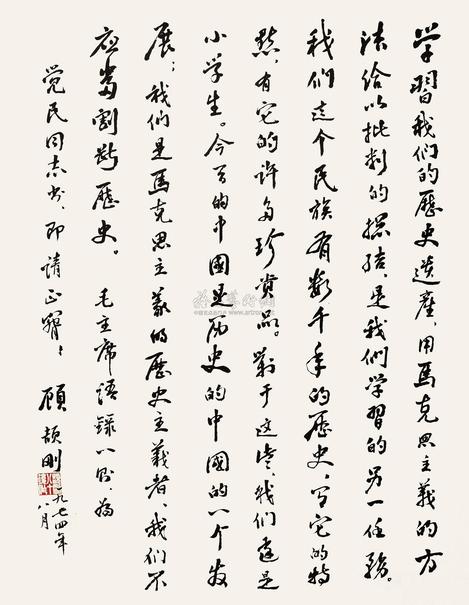 学習我们的歷史遗產,用馬克思主義的方
法给以批判的總结,是我们学習的另一任務。
我们这个民族有数千年的歷史,有它的特
點,有它的许多珍贵品。對于这些,我们还是
小学生。今天的中國是历史的中國的一个发
展;我们是馬克思主義的歷史主義者,我们不
应当割断歷史。 毛主席语録一则,为
觉民同志书,即請正 顾颉刚
一九七四年
八月